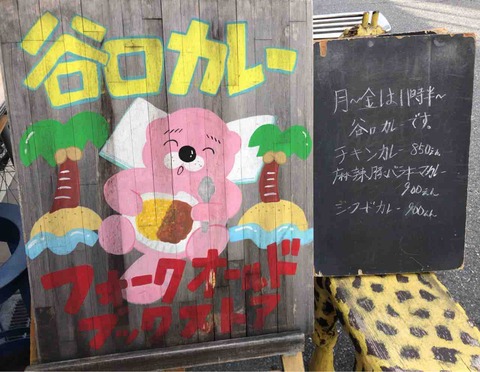 谷口カレー
フォークオールド
ブックストア
月〜金は11時半〜
谷口カレーです。
チキンカレー 850えん
900えん
シーフードカレー 900えん